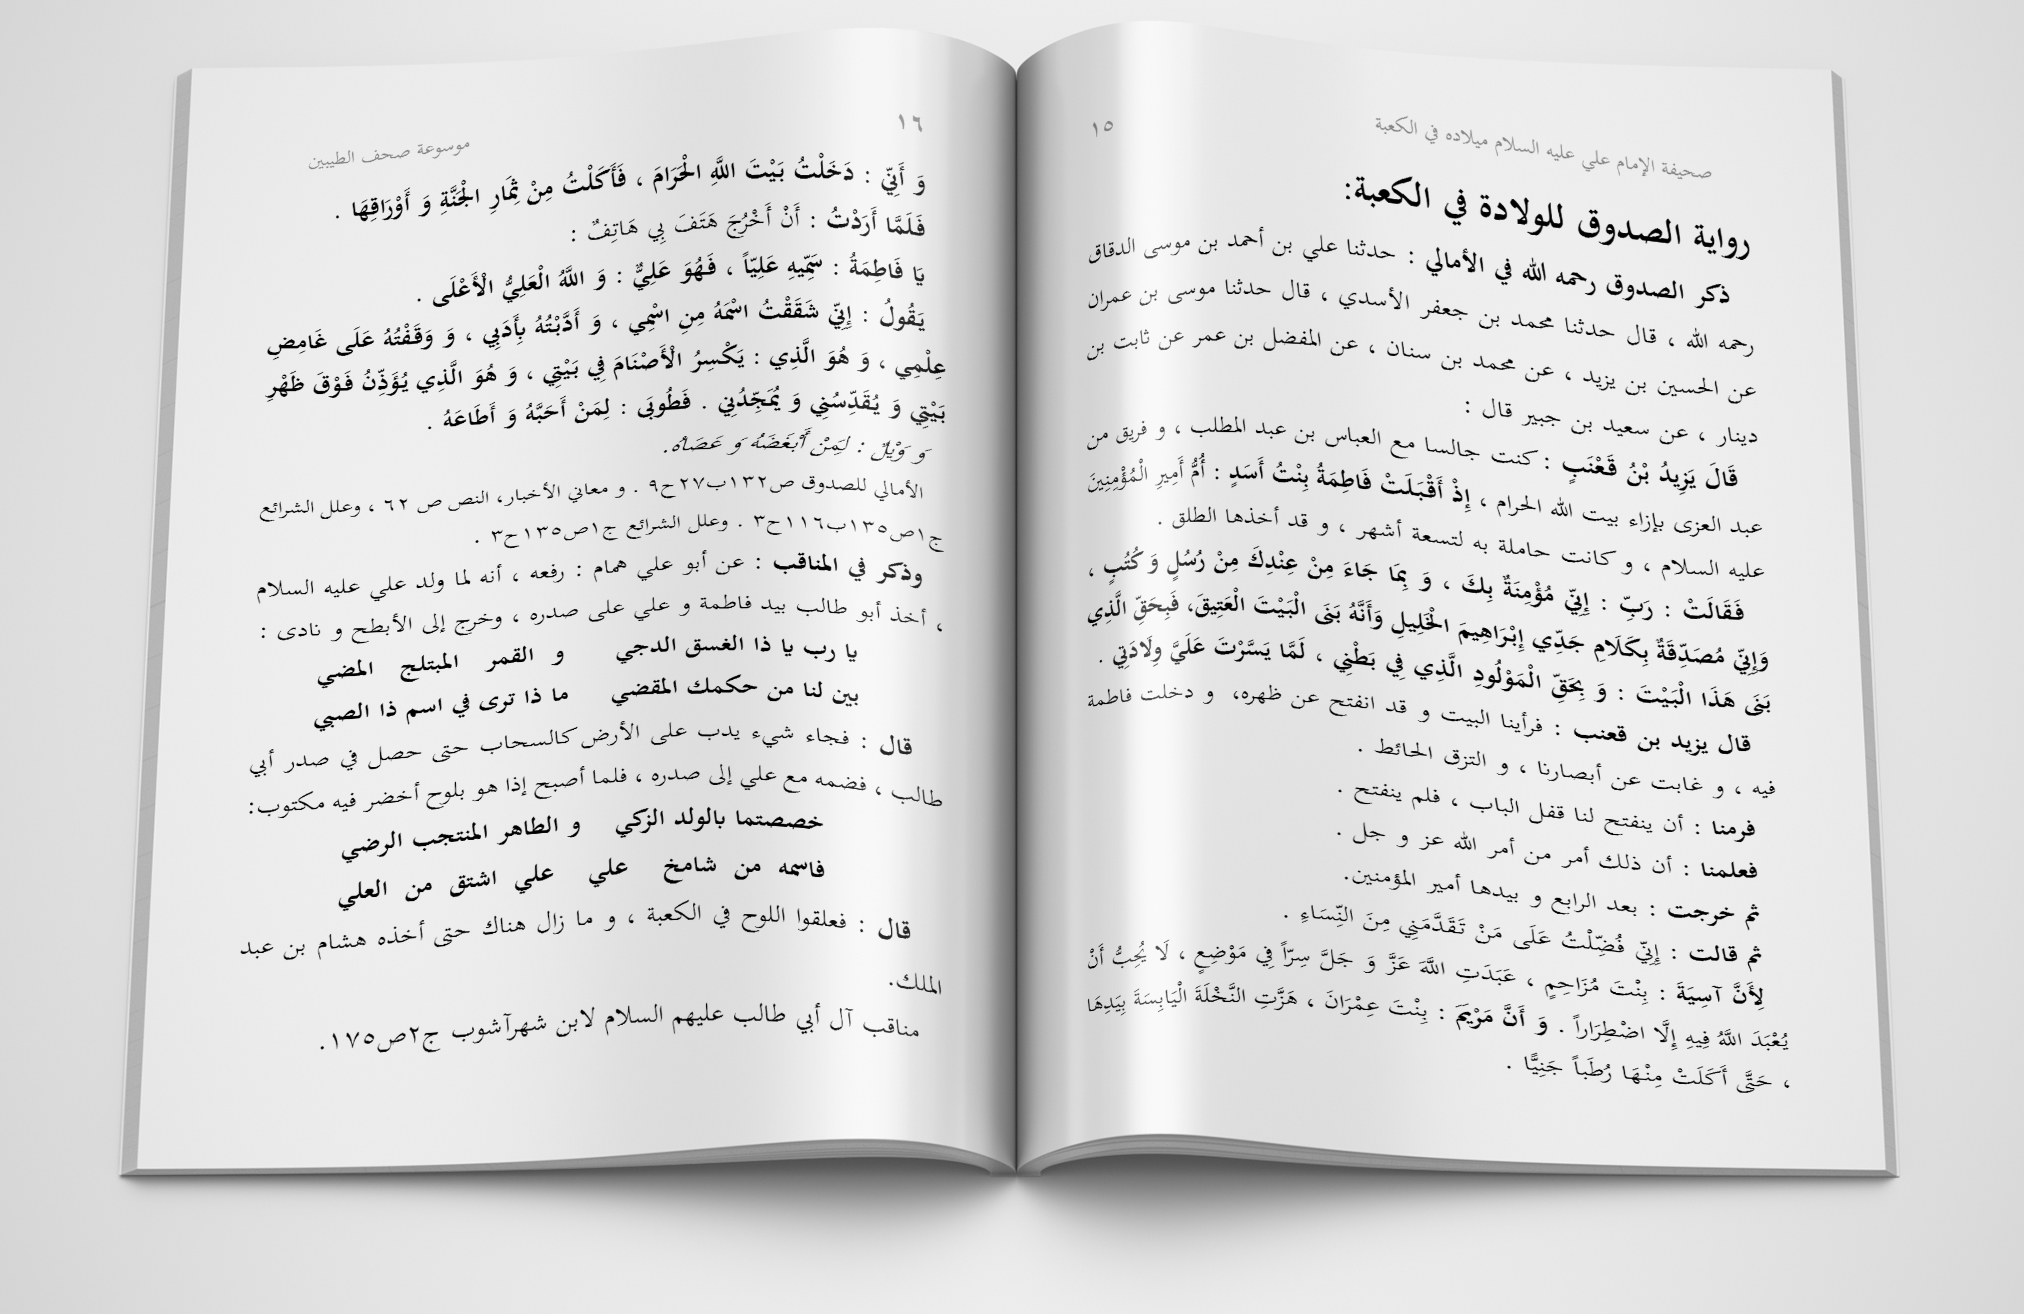 صحيفة الإمام علي عليه السلام ميلاده في الكعبة
١٥
رواية الصدوق للولادة في الكعبة:
ذكر الصدوق رحمه الله في الأمالي : حدثنا علي بن أحمد بن موسى الدقاق
رحمه الله ، قال حدثنا محمد بن جعفر الأسدي ، قال حدثنا موسى بن عمران
عن الحسين بن يزيد ، عن محمد بن سنان ، عن المفضل بن عمر عن ثابت بن
دينار ، عن سعيد بن جبير قال :
قَالَ يَزِيدُ بْنُ قَعْنَبٍ : كنت جالسا مع العباس بن عبد المطلب ، و فريق من
عبد العزى بإزاء بيت الله الحرام ، إِذْ أَقْبَلَتْ فَاطِمَةُ بِنْتُ أَسَدٍ : أُمُّ أَمِيرِ الْمُؤْمِنِينَ
عليه السلام ، و كانت حاملة به لتسعة أشهر ، و قد أخذها الطلق .
فَقَالَتْ : رَبِّ : إِنِّي مُؤْمِنَةٌ بِكَ ، وَ بِمَا جَاءَ مِنْ عِنْدِكَ مِنْ رُسُلٍ وَ كُتُبٍ ،
وَإِنِّي مُصَدِّقَةٌ بِكَلَامِ جَدِّي إِبْرَاهِيمَ الْخَلِيلِ وَأَنَّهُ بَنَى الْبَيْتَ الْعَتِيقَ، فَبِحَقِّ الَّذِي
بَنَى هَذَا الْبَيْتَ : وَ بِحَقِّ الْمَوْلُودِ الَّذِي فِي بَطْنِي ، لَمَّا يَسَّرْتَ عَلَيَّ وِلَادَتِي .
قال يزيد بن قعنب : فرأينا البيت و قد انفتح عن ظهره، و دخلت فاطمة
فيه ، و غابت عن أبصارنا ، و التزق الحائط .
فرمنا : أن ينفتح لنا قفل الباب ، فلم ينفتح .
فعلمنا : أن ذلك أمر من أمر الله عز و جل .
ثم خرجت : بعد الرابع و بيدها أمير المؤمنين.
ثم قالت : إِنِّي فُضِّلْتُ عَلَى مَنْ تَقَدَّمَنِي مِنَ النِّسَاءِ .
لِأَنَّ آسِيَةَ : بِنْتَ مُزَاحِمٍ ، عَبَدَتِ اللَّهَ عَزَّ وَ جَلَّ سِرّاً فِي مَوْضِعٍ ، لَا يُحِبُّ أَنْ
يُعْبَدَ اللَّهُ فِيهِ إِلَّا اضْطِرَاراً . وَ أَنَّ مَرْيَمَ : بِنْتَ عِمْرَانَ ، هَزَّتِ النَّخْلَةَ الْيَابِسَةَ بِيَدِهَا
، حَتَّى أَكَلَتْ مِنْهَا رُطَباً جَنِيًّا .
١٦
موسوعة صحف الطيبين
وَ أَنِّي : دَخَلْتُ بَيْتَ اللَّهِ الْحَرَامَ ، فَأَكَلْتُ مِنْ ثِمَارِ الْجَنَّةِ وَ أَوْرَاقِهَا .
فَلَمَّا أَرَدْتُ : أَنْ أَخْرُجَ هَتَفَ بِي هَاتِفٌ :
يَا فَاطِمَةُ : سَمِّيهِ عَلِيّاً ، فَهُوَ عَلِيٌّ : وَ اللَّهُ الْعَلِيُّ الْأَعْلَى .
يَقُولُ : إِنِّي شَقَقْتُ اسْمَهُ مِنِ اسْمِي ، وَ أَدَّبْتُهُ بِأَدَبِي ، وَ وَقَفْتُهُ عَلَى غَامِضِ
عِلْمِي ، وَ هُوَ الَّذِي : يَكْسِرُ الْأَصْنَامَ فِي بَيْتِي ، وَ هُوَ الَّذِي يُؤَذِّنُ فَوْقَ ظَهْرِ
بَيْتِي وَ يُقَدِّسُنِي وَ يُمَجِّدُنِي . فَطُوبَى : لِمَنْ أَحَبَّهُ وَ أَطَاعَهُ .
وَ وَيْلٌ : لِمَنْ أَبْغَضَهُ وَ عَصَاهُ.
الأمالي للصدوق ص١٣٢ب٢٧ح٩ . و معاني الأخبار، النص ص ٦٢ ، وعلل الشرائع
ج١ص١٣٥ب١١٦ح٣ . وعلل الشرائع ج١ص١٣٥ح٣ .
وذكر في المناقب : عن أبو علي همام : رفعه ، أنه لما ولد علي عليه السلام
، أخذ أبو طالب بيد فاطمة و علي على صدره ، وخرج إلى الأبطح و نادى :
يا رب يا ذا الغسق الدجي و القمر المبتلج المضي
بين لنا من حكمك المقضي ما ذا ترى في اسم ذا الصبي
قال : فجاء شيء يدب على الأرض كالسحاب حتى حصل في صدر أبي
طالب ، فضمه مع علي إلى صدره ، فلما أصبح إذا هو بلوح أخضر فيه مكتوب:
خصصتما بالولد الزكي و الطاهر المنتجب الرضي
فاسمه من شامخ علي علي اشتق من العلي
قال : فعلقوا اللوح في الكعبة ، و ما زال هناك حتى أخذه هشام بن عبد
الملك.
مناقب آل أبي طالب عليهم السلام لابن شهرآشوب ج٢ص١٧٥.